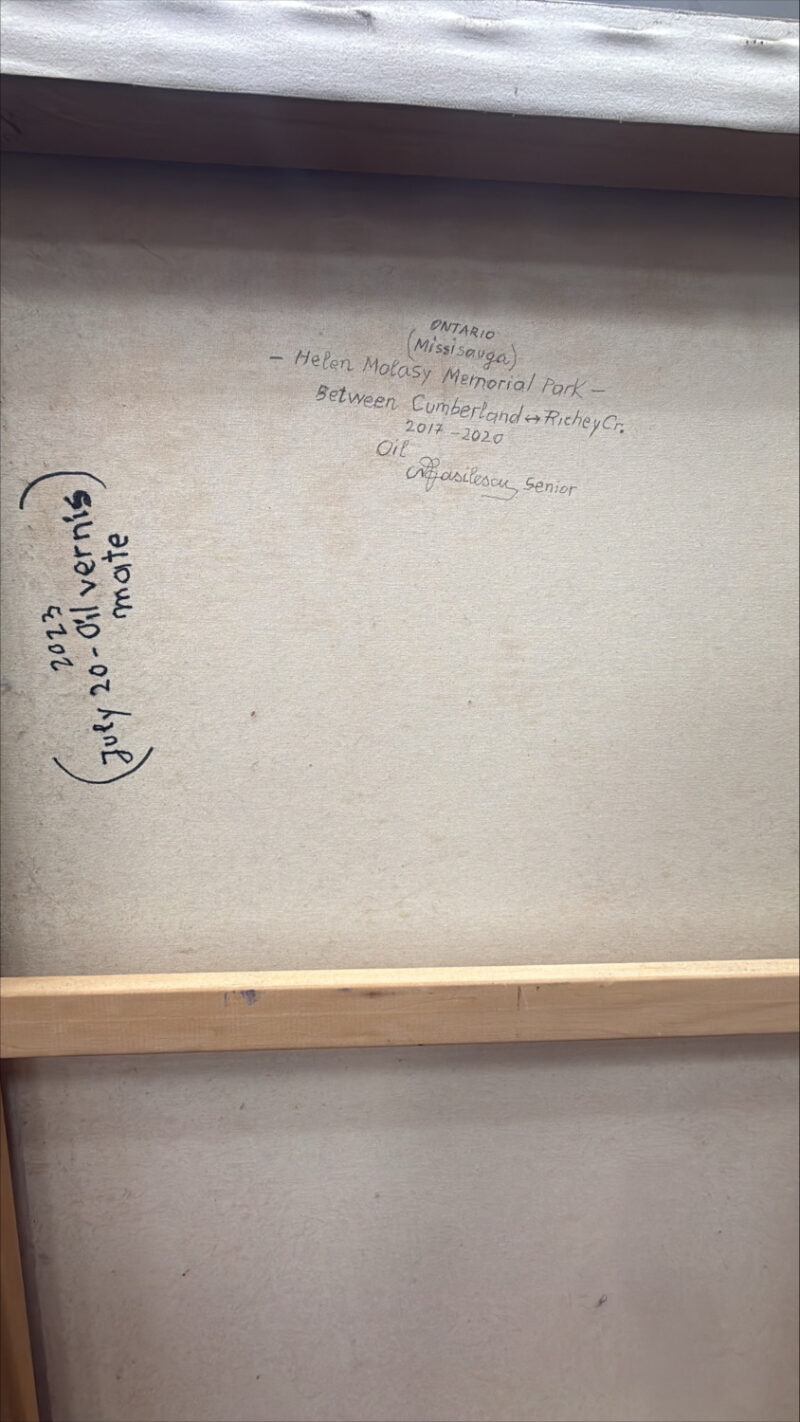 ONTARIO
(Missisauga)
- Helen Molasy Memorial Park -
Between Cumberland ↔ Richey Cr.
2017 - 2020
Oil
Senior
2023
(July 20 - Oil vernis)
mate